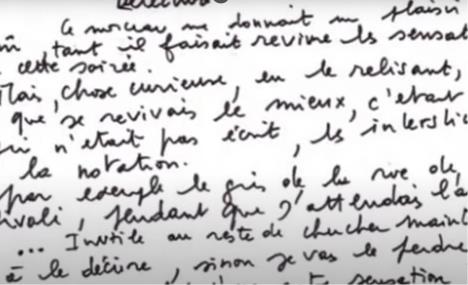 Ce morceau me donnait un plaisir
tant il faisait revivre ls sensat
cette soirée.
Mais, chose curieuse, en le relisant,
que je revivais le mieux, c'était
n'était pas écrit, ls interstic
la notation.
par exemple le gris de la rue de
ivoli, pendant que j'attendais l'a
... Inutile au reste de chercher maint
à le décrire, sinon je vas le perdre
sensation